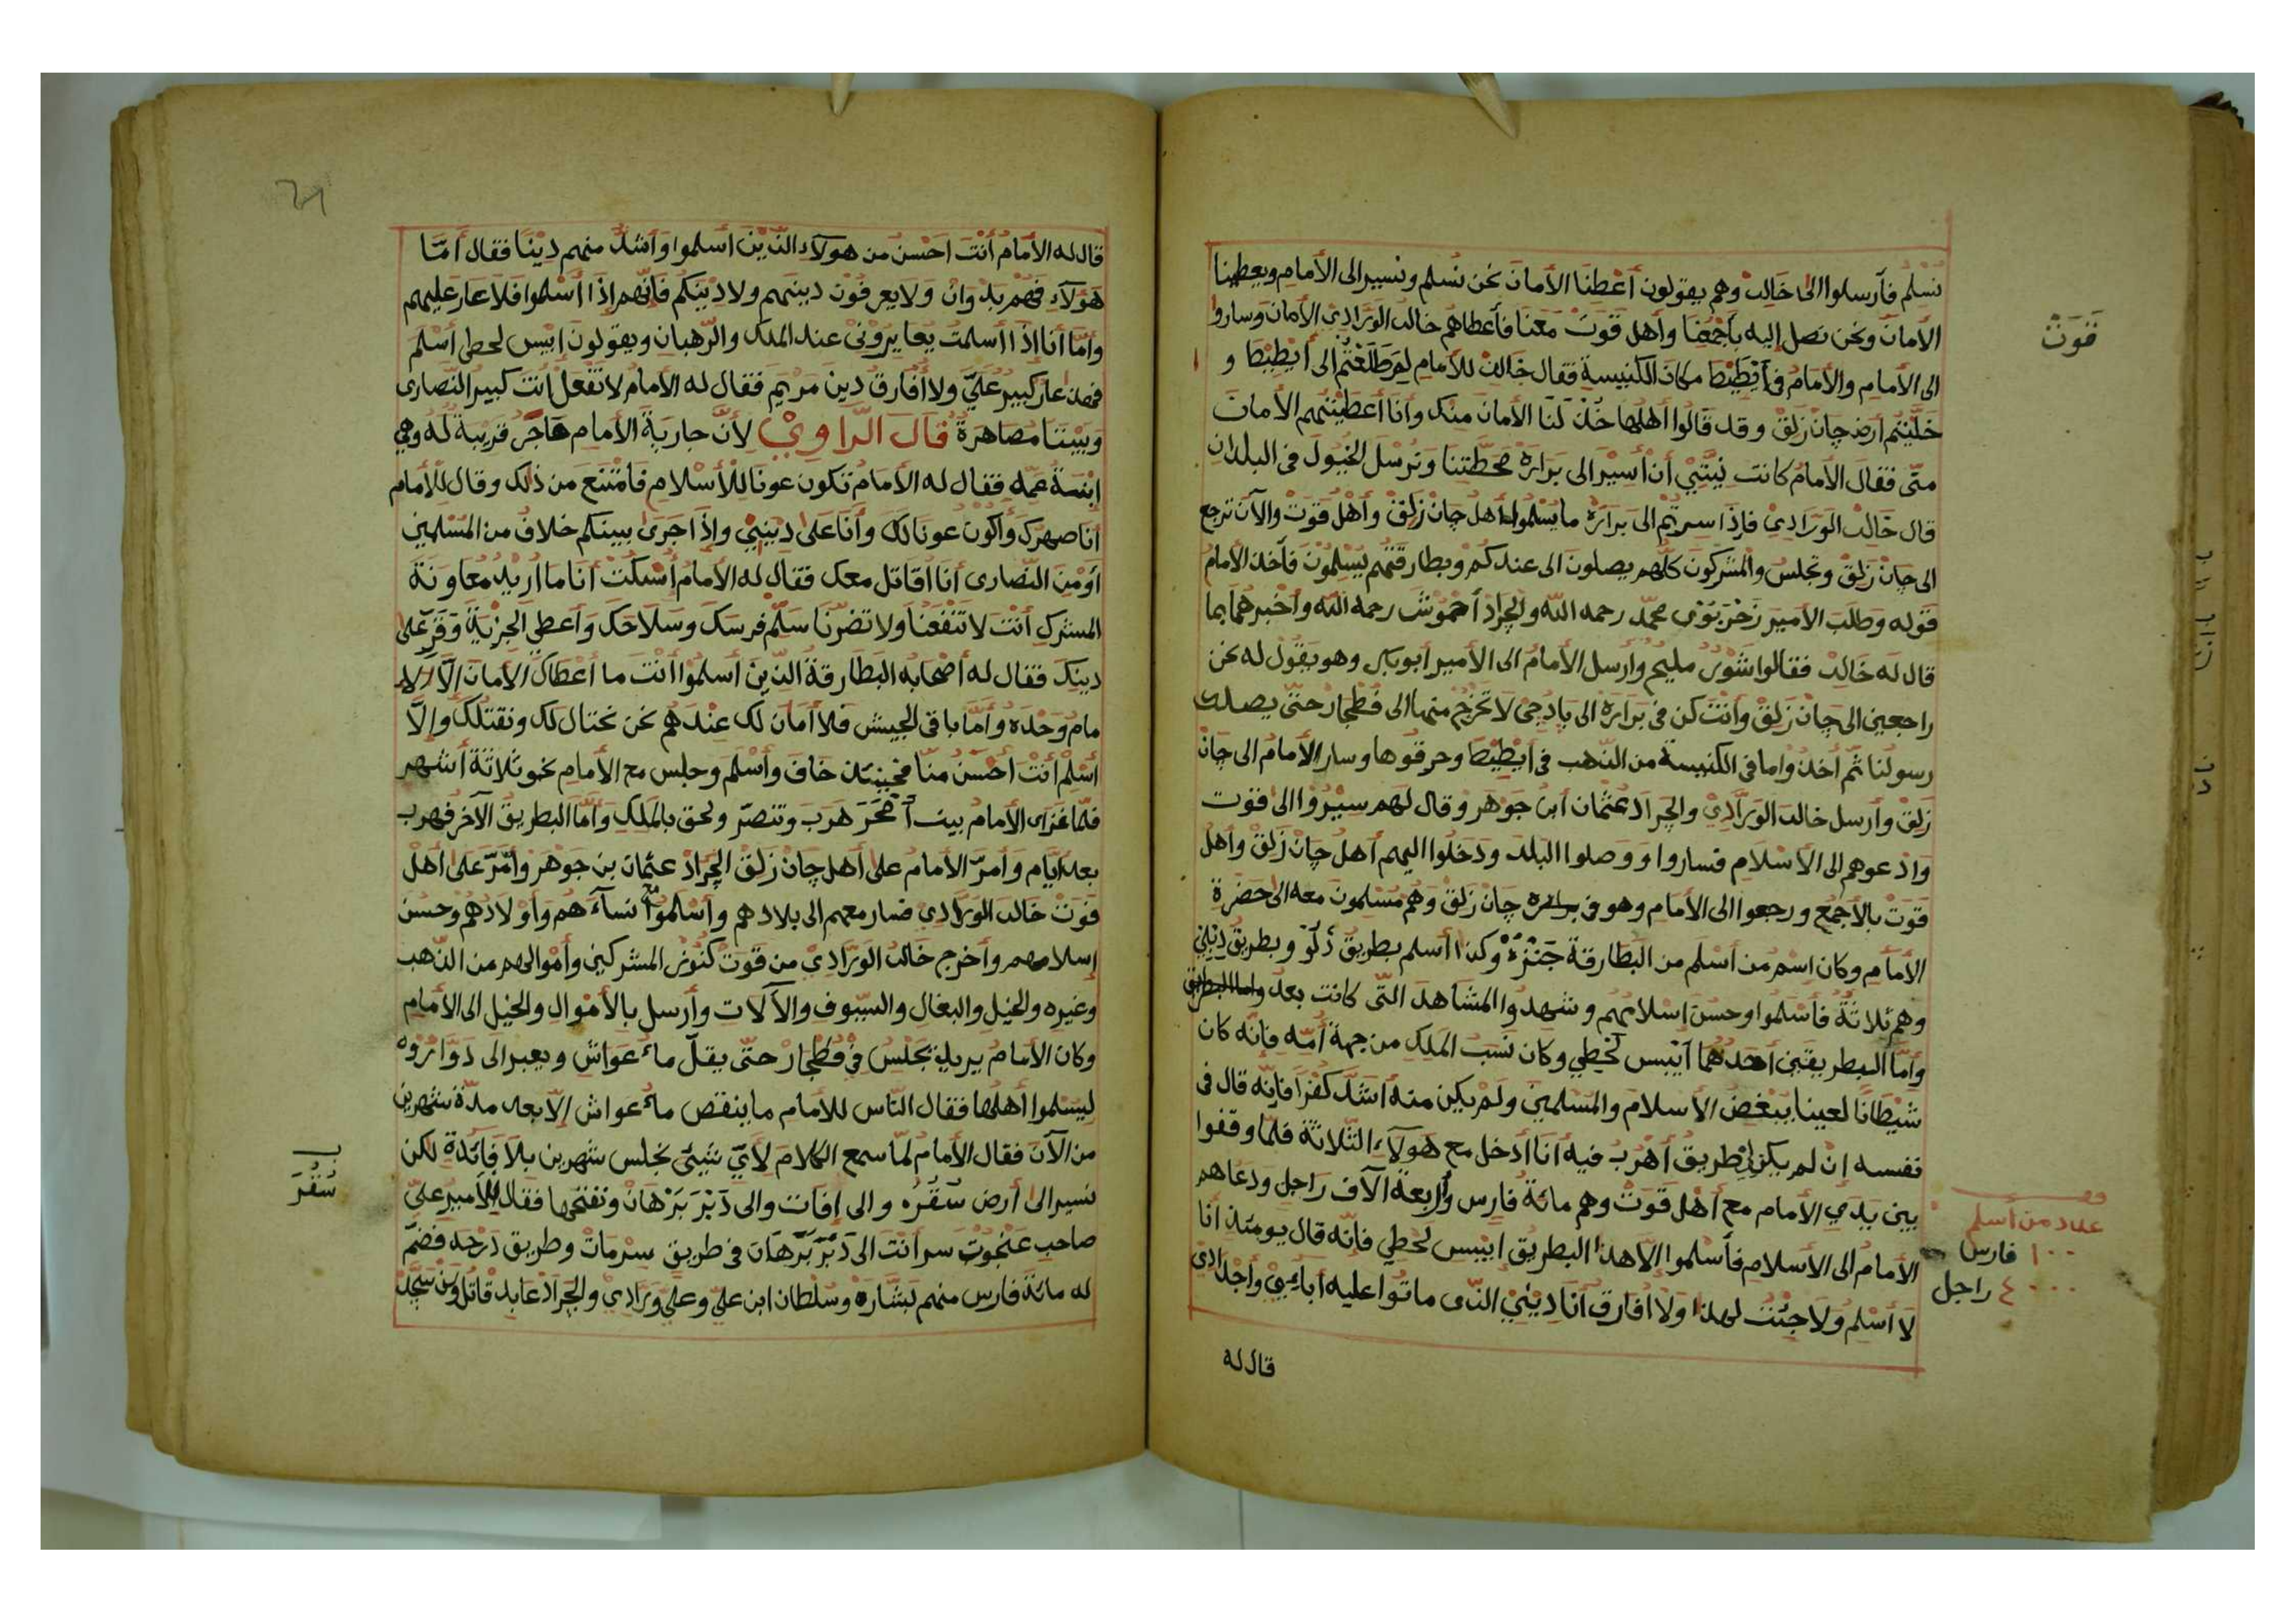 نسلم فأرسلوا الى خالد وهم يقولون أعطنا الأمان نحن نسلم ونسير الى الأمام ويعطينا
الأمان ونحن نصل إليه بأجمعنا وأهل قَوَتْ معنا فأعطاهم خالد الوَرَادِي الأمان وساروا
قَوَتْ
الى الأمام والأمام في أيْطِيْطا مكان الكنيسة فقال خالد للأمام لم طلعتم الى أيطيطا و
خلّيتم أرض جانْ زَلِقْ وقد قالوا أهلها خذ لنا الأمان منك وأنا أعطيتهم الأمان
منّى فقال الأمام كانت نيّتي أن أسير الى بَرارَه محطّتنا ونرسل الخيول في البلدان
قال خالد الوَرَادِي فإذا سرتم الى برارَه ما يسلموا أهل جان زَلِقْ وأهل قَوَتْ والآن نرجع
الى جانْ زَلِقْ ونجلس والمشركون كلّهم يصلون الى عندكم وبطارقتهم يسلمون فأخذ الأمام
قوله وطلب الأمير زَحْرَبُوي محمّد رحمه الله والجراد أحْمُوشَ رحمه الله وأخبرهما بما
قال له خالد فقالوا شَوْرٌ مليح وأرسل الأمام الى الأمير أبوبكر وهو يقول له نحن
راجعين الى جانْ زَلِقْ وأنت كن في بَرَارَه الى بادِجي لا تخرج منها الى فَطَجار حتّى يصلك
رسولنا ثمّ أخذوا ما في الكنيسة من الذّهب في أيطيطا وحرقوها وسار الأمام الى جانْ
زَلِق وأرسل خالد الوَرَّادِي والجراد عثمان ابن جوهر وقال لهم سيروا الى قوَت
وادعوهم الى الأسلام فساروا ووصلوا البلد ودخلوا اليهم أهل جانْ زَلِقْ وأهل
قَوَتْ بالأجمع ورجعوا الى الأمام وهو في براره جانْ زَلِقْ وهم مسلمون معه الى حضرة
الأمام وكان اسم من أسلم من البطارقة جَنْزَهْ وكذا أسلم بطريق دَلَوْ وبطريق
وهم ثلاثة فأسلموا وحسن اسلامهم وشهدوا المشاهد الّتى كانت بعد
وأمّا البطريقين أحدهما أيْبس لحطي وكان نسب الملك من جهة أمّه فإنّه كان
شيطانا لعينا يبغض الأسلام والمسلمين ولم يكن منه أشدّ كفرا فإنّه قال في
نفسه إن لم يكن لي طريق أهرب فيه أنا أدخل مع هؤلاء الثّلاثة فلمّا وقفوا
بين يدي الأمام مع أهل قَوَتْ وهم مائة فارس وأربعة آلاف راجل ودعاهم
الأمام الى الأسلام فأسلموا إلّا هذا البطريق إيْبس لحطي فإنّه قال يومئذ أنا
لا أسلم ولا جئت لهذا ولا أفارق أنا ديني الّذى ماتوا عليه أبائي وأجدادي
عدد من أسلم
١٠٠ فارس
٤٠٠٠ راجل
قال له
قال له الأمام أنت أحسن من هولاء الّذين أسلموا وأشدّ منهم دينًا فقال أمّا
هؤلاء فهم بدوان ولا يعرفون دينهم ولا دينكم فإنّهم إذا أسلموا فلا عار عليهم
وأمّا أنا إذا أسلمت يعايروني عند الملك والرّهبان ويقولون إيْبس لحطي أسلم
فهذا عار كبير عليّ ولا أفارق دين مريم فقال له الأمام لا تفعل أنت كبير النّصارى
وبيننا مصاهرة قال الرّاوي لأنّ جارية الأمام هاجَر قريبة له وهي
إبنة عمّه فقال له الأمام تكون عونا للأسلام فامتنع من ذلك وقال للأمام
أنا صهرك وأكون عونا لك وأنا على ديني وإذا جرى بينكم خلاف من المسلمين
أو من النّصارى أنا أقاتل معك فقال له الأمام أسكت أنا ما أريد معاونة
المشرك أنت لا تنفعنا ولا تضرّنا سلّم فرسك وسلاحك وأعطي الجزية وقر على
دينك فقال له أصحابه البطارقة الّذين أسلموا أنت ما أعطاك الأمان إلّا الإ
مام وحده وأمّا باقى الجيش فلا أمان لك عندهم نحن نحتال لك ونقتلك وإلّا
أسلم أنت أحسن منا فحينئذ خاف وأسلم وجلس مع الأمام نحو ثلاثة أشهر
فلمّا غزا الأمام بيت أَمحَرَ هرب وتنصّر ولحق بالملك وأمّا البطريق الآخر فهرب
بعد أيّام وأمرّ الأمام على أهل جانْ زَلِقْ الجراد عثمان بن جوهر وأمّر على أهل
قَوَتْ خالد الوَرَادِي فسار معهم الى بلادهم وأسلموا نساءهم وأولادهم وحسن
إسلامهم وأخرج خالد الوَرَادِي من قوت كنوز المشركين وأموالهم من الذّهب
وغيره والخيل والبغال والسّيوف والآلات وأرسل بالأموال والخيل الى الأمام
وكان الأمام يريد يجلس في فَطَجار حتّى يقلّ ماء عَواش ويعبر الى دَوَارُوه
ليسلموا أهلها فقال النّاس للأمام ما ينقص ماء عواش إلّا بعد مدّة شهرين
من الآن فقال الأمام لمّا سمع الكلام لأيّ شيئ نجلس شهرين بلا فائدة لكن
نسير الى أرض سَقَرَه والى إفات والى دَبْرَ بَرْهان ونفتحها فقال للأمير عليّ
سَقَرَ
صاحب عَنْجَوْت سر أنت الى دَبْرَ بَرْهان في طريق سِرْمات وطريق دَرْحَه فضمّ
له مائة فارس منهم بَشَارَه وسُلْطان ابن عليّ وعليّ وَرَادِي والجراد عابد